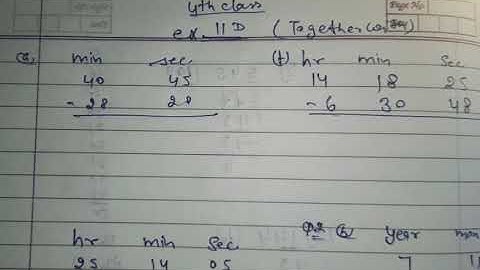 4th class
ex. 11 D (Together
(a) min sec (f) hr min sec
40 45 14 18 25
- 28 20 - 6 30 48
hr min sec Q.2 (b) year
25 14 05 7 11